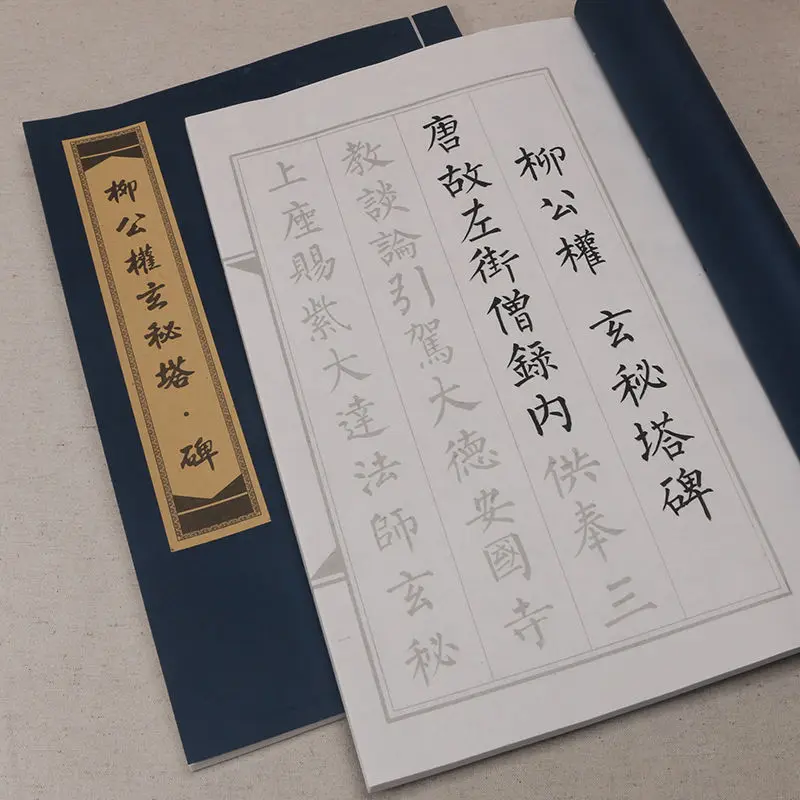 柳公權玄秘塔·碑
柳公權 玄秘塔碑
唐故左街僧錄內供奉三
教談論引駕大德安國寺
上座賜紫大達法師玄秘